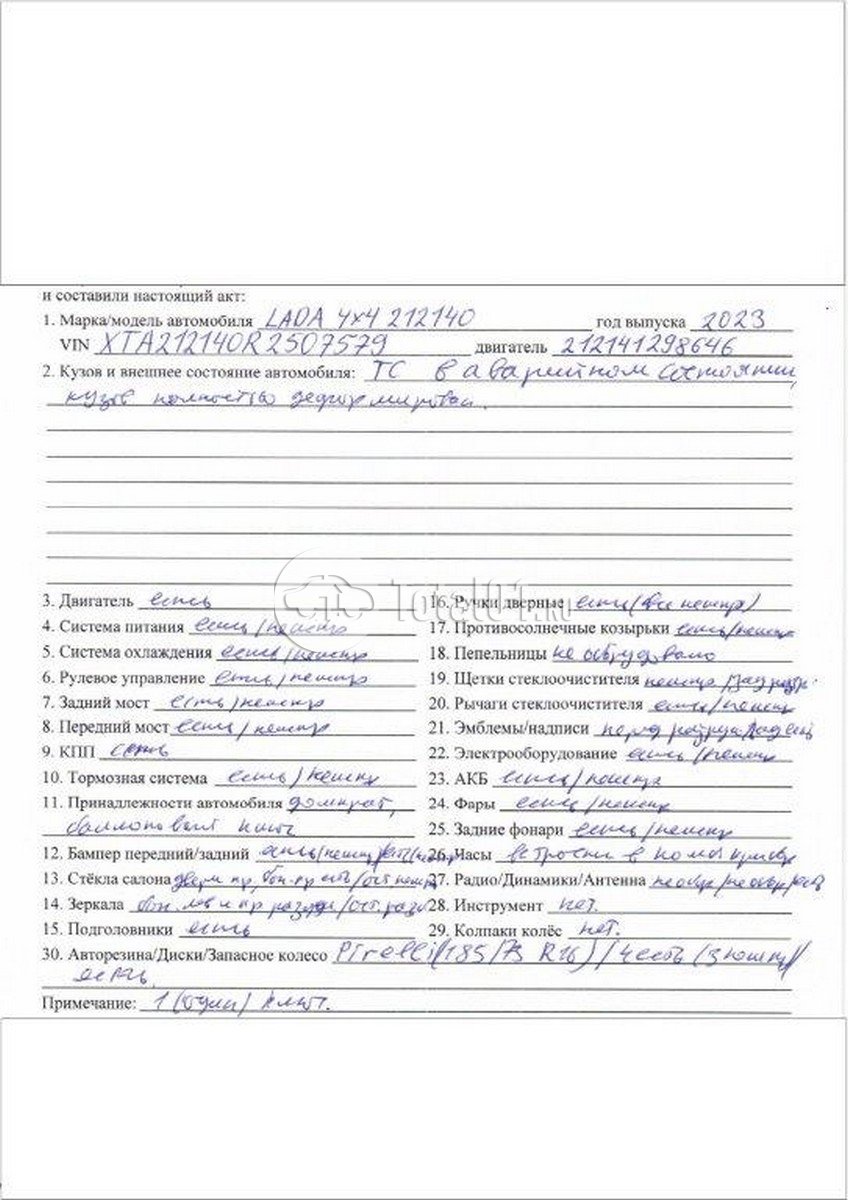 и составили настоящий акт:
1. Марка/модель автомобиля LADA 4x4 212140 год выпуска 2023
VIN XTA212140R2507579 двигатель 212141298646
2. Кузов и внешнее состояние автомобиля: ТС в аварийном состоянии,
кузов полностью деформирован.
Total01.ru
3. Двигатель есть
4. Система питания есть/неиспр
5. Система охлаждения есть/неиспр
6. Рулевое управление есть/неиспр
7. Задний мост есть/неиспр
8. Передний мост есть/неиспр
9. КПП есть
10. Тормозная система есть/неиспр
11. Принадлежности автомобиля домкрат,
баллоновый ключ
12. Бампер передний/задний есть/неиспр/есть/неиспр
13. Стёкла салона
14. Зеркала
15. Подголовники есть
16. Ручки дверные есть (все неиспр)
17. Противосолнечные козырьки есть/неиспр
18. Пепельницы не оборудовано
19. Щетки стеклоочистителя неиспр
20. Рычаги стеклоочистителя есть/неиспр
21. Эмблемы/надписи
22. Электрооборудование есть/неиспр
23. АКБ есть/неиспр
24. Фары есть/неиспр
25. Задние фонари есть/неиспр
26. Часы в
27. Радио/Динамики/Антенна
28. Инструмент нет.
29. Колпаки колёс нет.
30. Авторезина/Диски/Запасное колесо Pirelli (185/75 R16) / 4 есть (3 неиспр)/
есть.
Примечание: 1 (один) ключ.